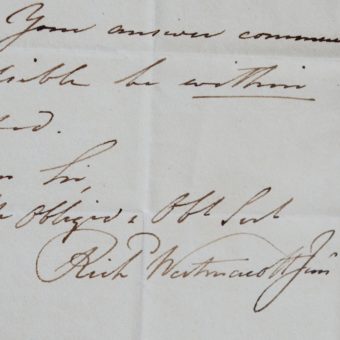 Your answer commun
sible be within
ed.
Sir,
Obliged & Obt Sert
Richd Westmacott Junr